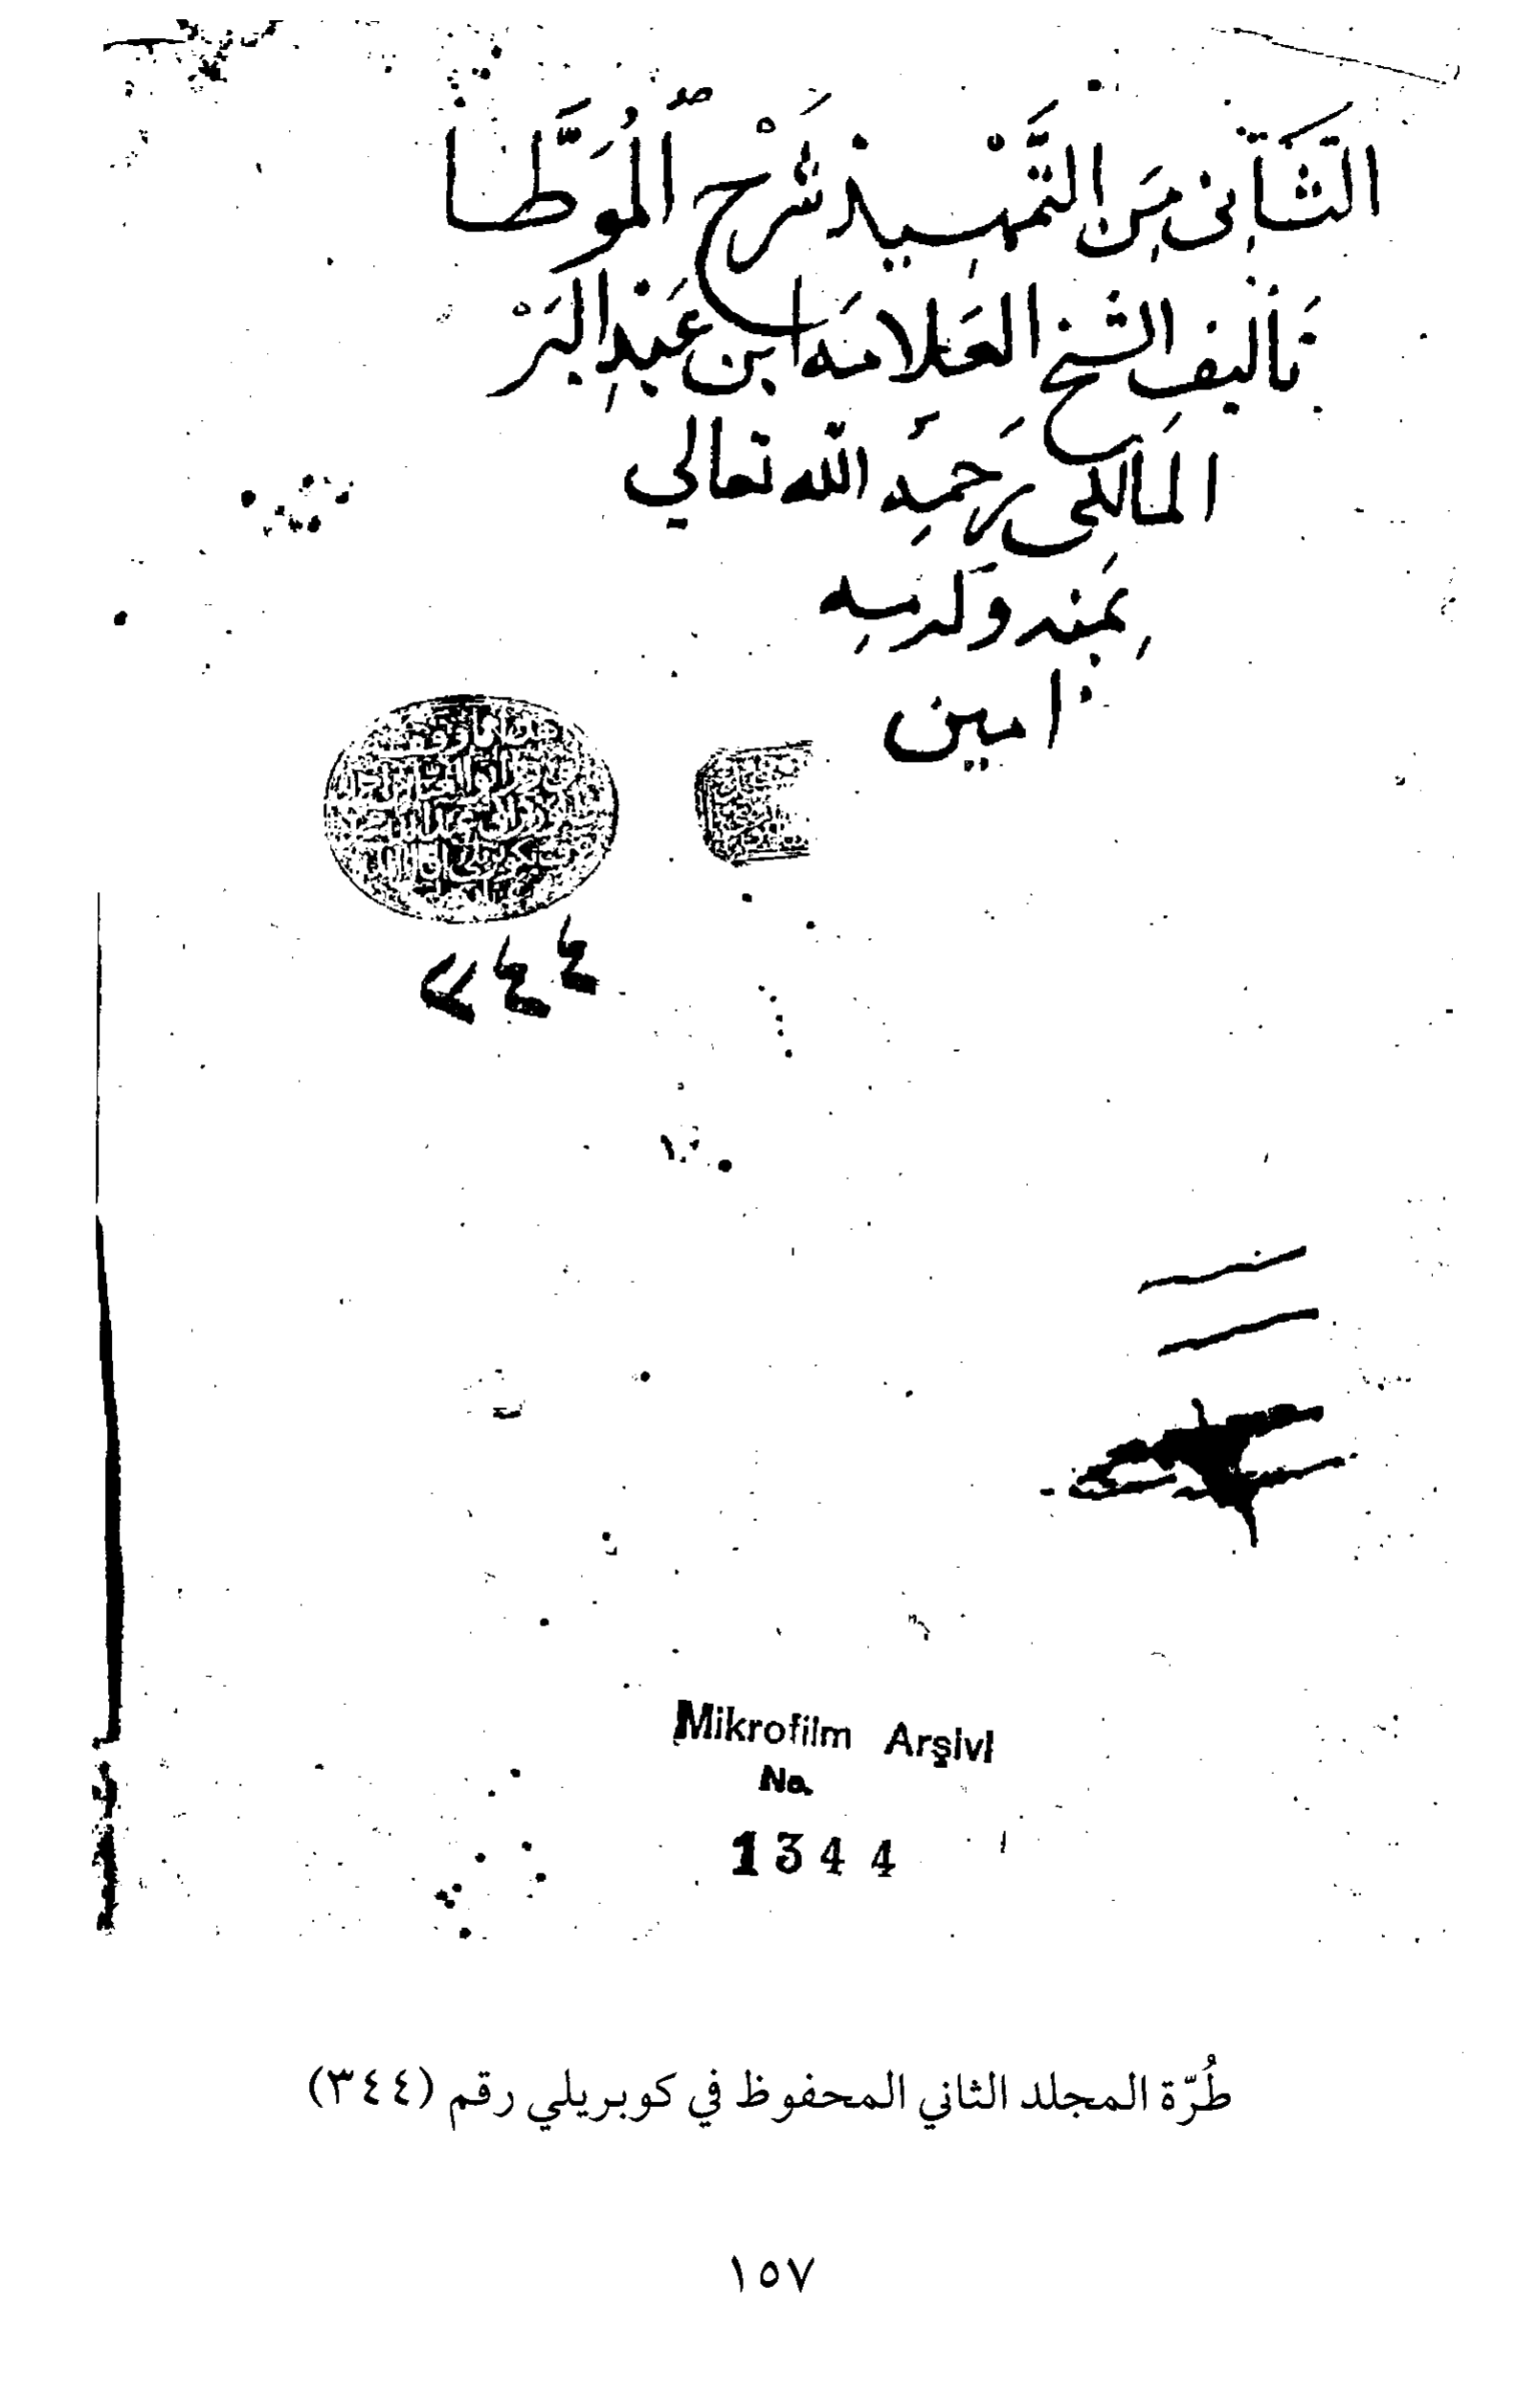 الثَّاني مِنَ التَّمْهِيذ شَرْح اْلمُوَطَّا
تَأليف الشيخ العَلامَه ابن عَبْدِ البَرْ
المَالكي رَحمِهُ الله تعالي
بِمَنه وَكرمِه
امين
هذا ما وقفه
٣٤٤
١٠
Mikrofilm Arşivi
No.
1344
طُرّة المجلد الثاني المحفوظ في كوبريلي رقم (٣٤٤)
١٥٧